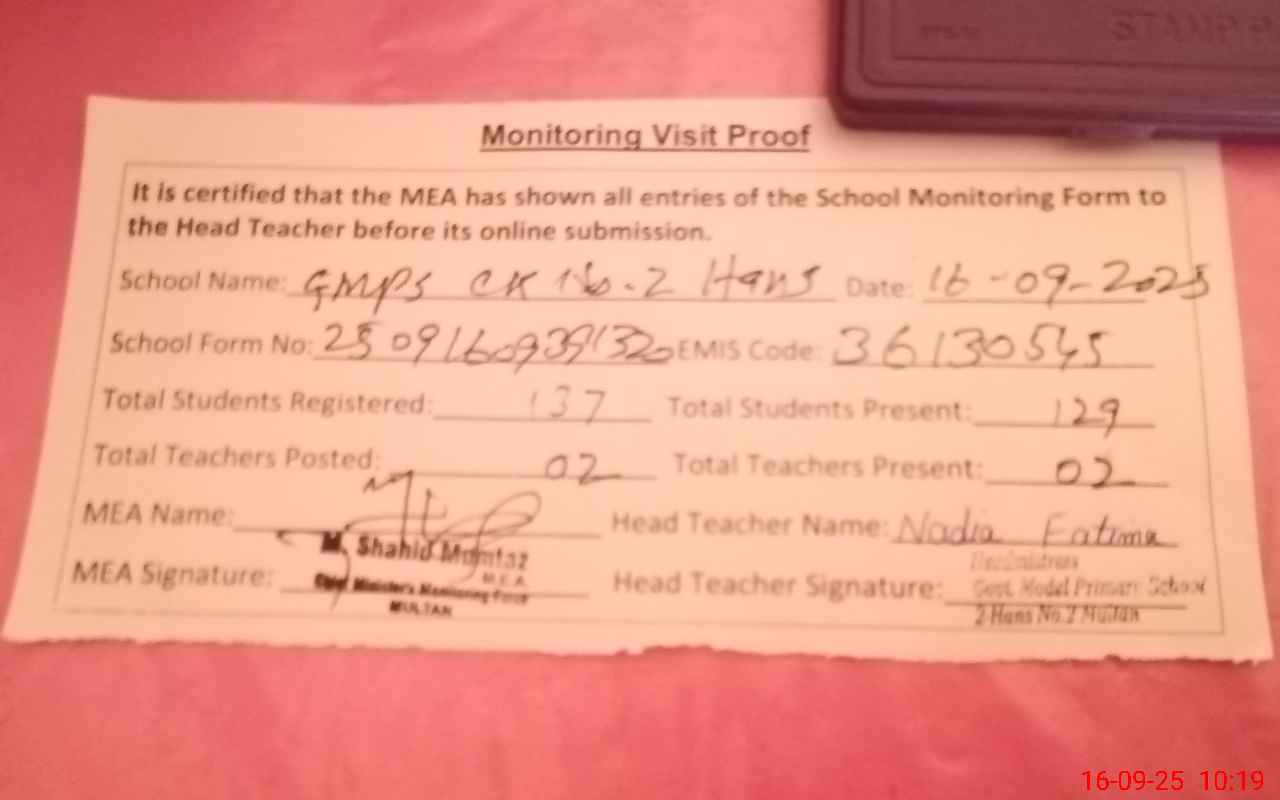 STAMP P
Monitoring Visit Proof
It is certified that the MEA has shown all entries of the School Monitoring Form to
the Head Teacher before its online submission.
School Name: GMPS CK No.2 Hans Date: 16-09-2025
School Form No: 25091609391320 EMIS Code: 36130545
Total Students Registered: 137 Total Students Present: 129
Total Teachers Posted: 02 Total Teachers Present: 02
MEA Name: Head Teacher Name: Nadia Fatima
M. Shahid Mumtaz
M.E.A
MEA Signature: Chief Minister's Monitoring Force
MULTAN
Head Teacher Signature: Headmistress
Govt. Model Primary School
2-Hans No.2 Multan
16-09-25 10:19